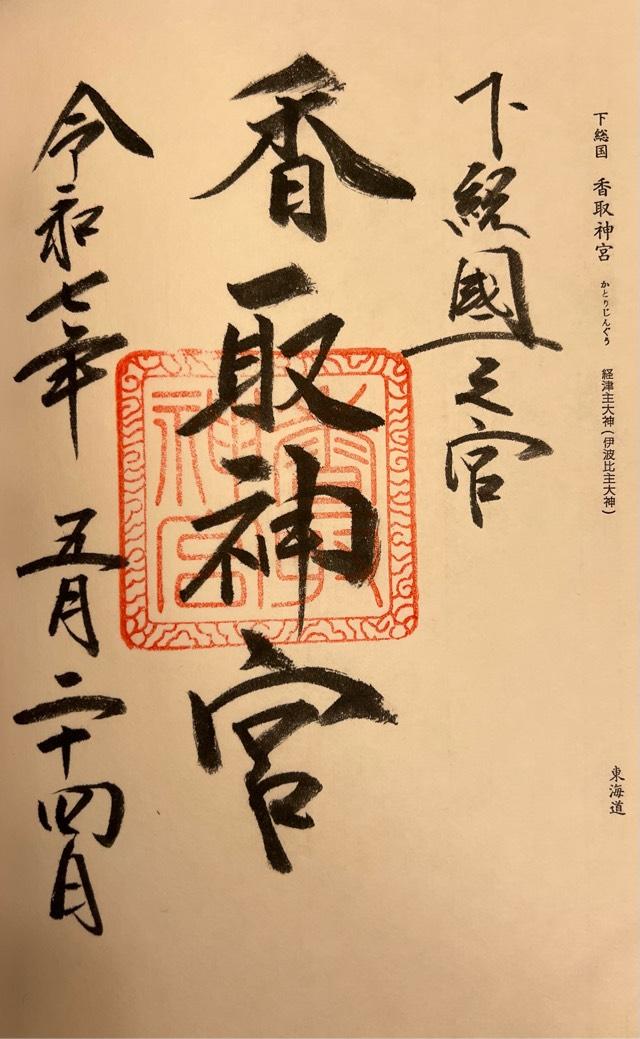 下総国　香取神宮　かとりじんぐう　経津主大神（伊波比主大神）
東海道
下総國之宮
香取神宮
香取神宮
令和七年　五月二十四日